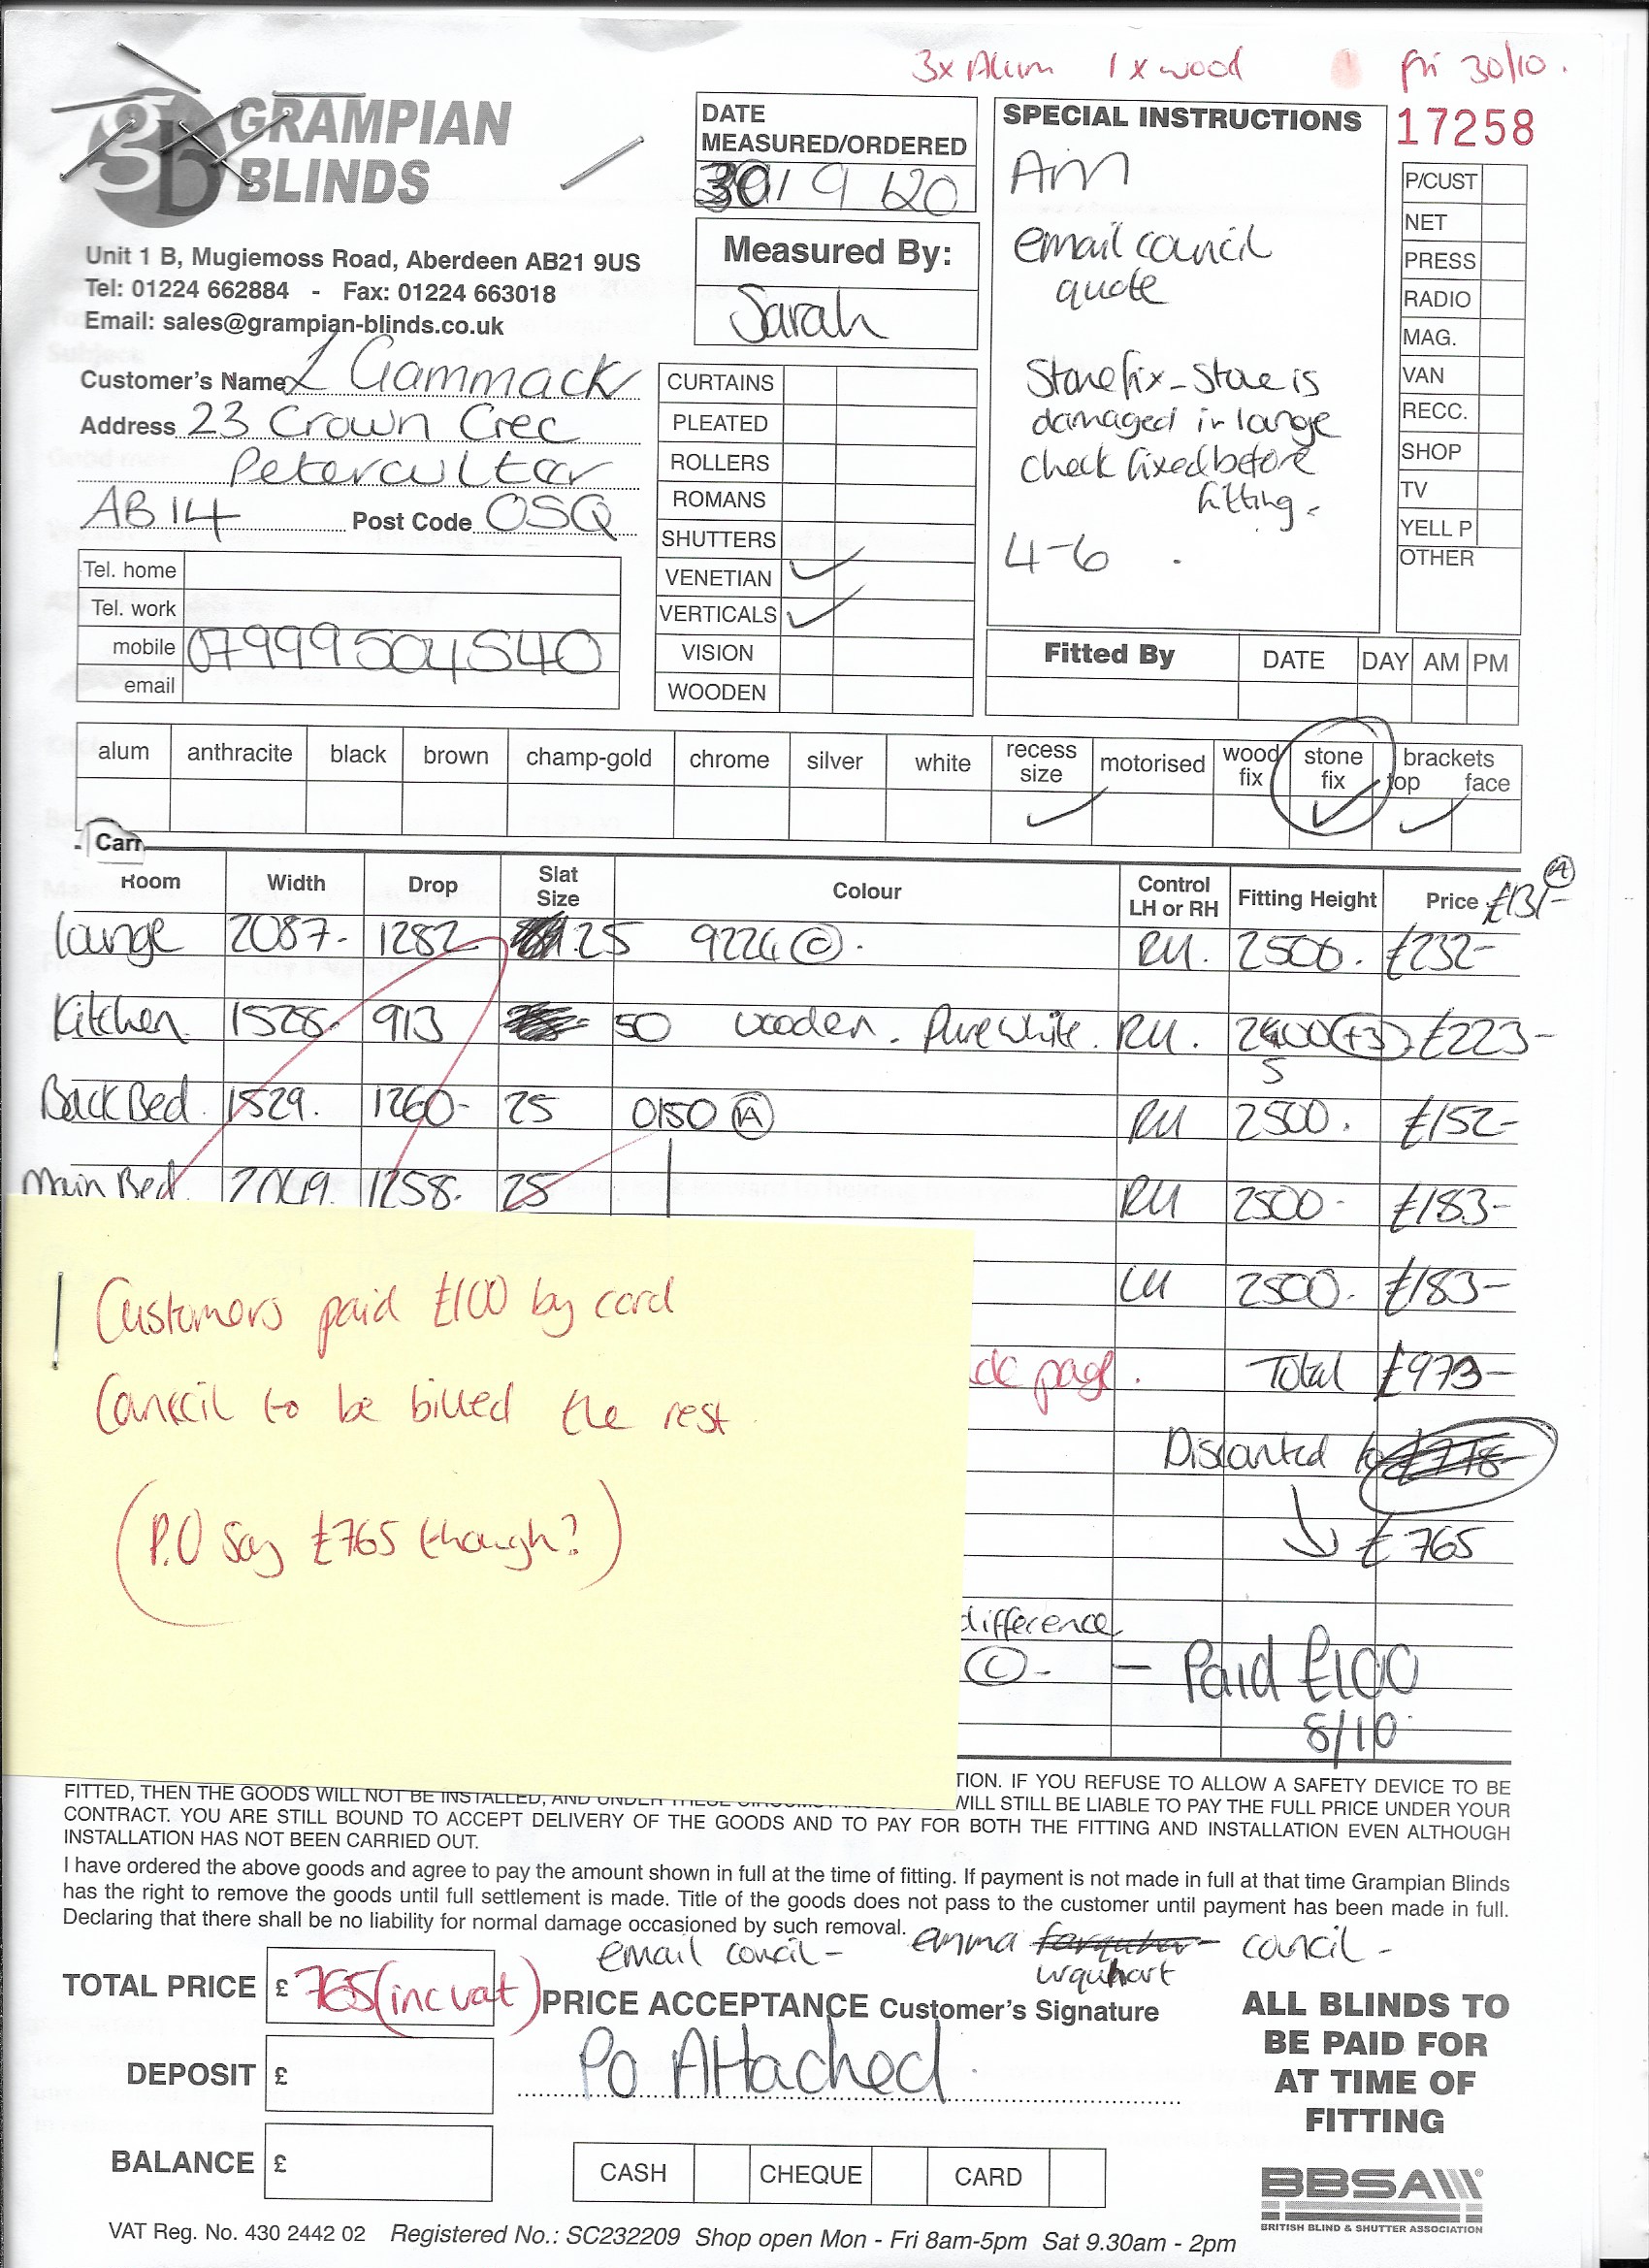 3x Alum 1 x wood fri 30/10.
GRAMPIAN
BLINDS
Unit 1 B, Mugiemoss Road, Aberdeen AB21 9US
Tel: 01224 662884 - Fax: 01224 663018
Email: sales@grampian-blinds.co.uk
Customer's Name L Gammack
Address 23 Crown Crec
Petercultar
AB14 Post Code OSQ
Tel. home
Tel. work
mobile 07999504540
email
DATE
MEASURED/ORDERED
30/9/20
Measured By:
Sarah
CURTAINS
PLEATED
ROLLERS
ROMANS
SHUTTERS
VENETIAN ✓
VERTICALS ✓
VISION
WOODEN
SPECIAL INSTRUCTIONS
AM
email council
quote
Stonefix - Stone is
damaged in lounge
check fixed before
fitting.
4-6
17258
P/CUST
NET
PRESS
RADIO
MAG.
VAN
RECC.
SHOP
TV
YELL P
OTHER
Fitted By DATE DAY AM PM
alum anthracite black brown champ-gold chrome silver white recess size ✓ motorised wood fix stone fix ✓ brackets top ✓ face
Carr
Room Width Drop Slat Size Colour Control LH or RH Fitting Height Price £131- (A)
Lounge 2087- 1282 25 9224 (C). RH. 2500. £232-
Kitchen 1528- 913 50 wooden. Pure white. RH. 2500 (+3) £223-
Back Bed. 1529. 1260- 25 0150 (A) RH 2500. £152-
Main Bed. 2049. 1258. 25 RH 2500- £183-
LH 2500. £183-
page. Total £973-
Discounted to
£765
difference
(C)- - Paid £100
8/10
Customers paid £100 by card
Council to be billed the rest.
(P.O say £765 though?)
TION. IF YOU REFUSE TO ALLOW A SAFETY DEVICE TO BE
FITTED, THEN THE GOODS WILL NOT BE INSTALLED, AND UNDER THESE WILL STILL BE LIABLE TO PAY THE FULL PRICE UNDER YOUR
CONTRACT. YOU ARE STILL BOUND TO ACCEPT DELIVERY OF THE GOODS AND TO PAY FOR BOTH THE FITTING AND INSTALLATION EVEN ALTHOUGH
INSTALLATION HAS NOT BEEN CARRIED OUT.
I have ordered the above goods and agree to pay the amount shown in full at the time of fitting. If payment is not made in full at that time Grampian Blinds
has the right to remove the goods until full settlement is made. Title of the goods does not pass to the customer until payment has been made in full.
Declaring that there shall be no liability for normal damage occasioned by such removal.
email concil - emma farquhar urquhart council -
TOTAL PRICE £ 765 (inc vat)
PRICE ACCEPTANCE Customer's Signature
PO Attached.
DEPOSIT £
BALANCE £
CASH CHEQUE CARD
ALL BLINDS TO
BE PAID FOR
AT TIME OF
FITTING
BBSA
BRITISH BLIND & SHUTTER ASSOCIATION
VAT Reg. No. 430 2442 02 Registered No.: SC232209 Shop open Mon - Fri 8am-5pm Sat 9.30am - 2pm